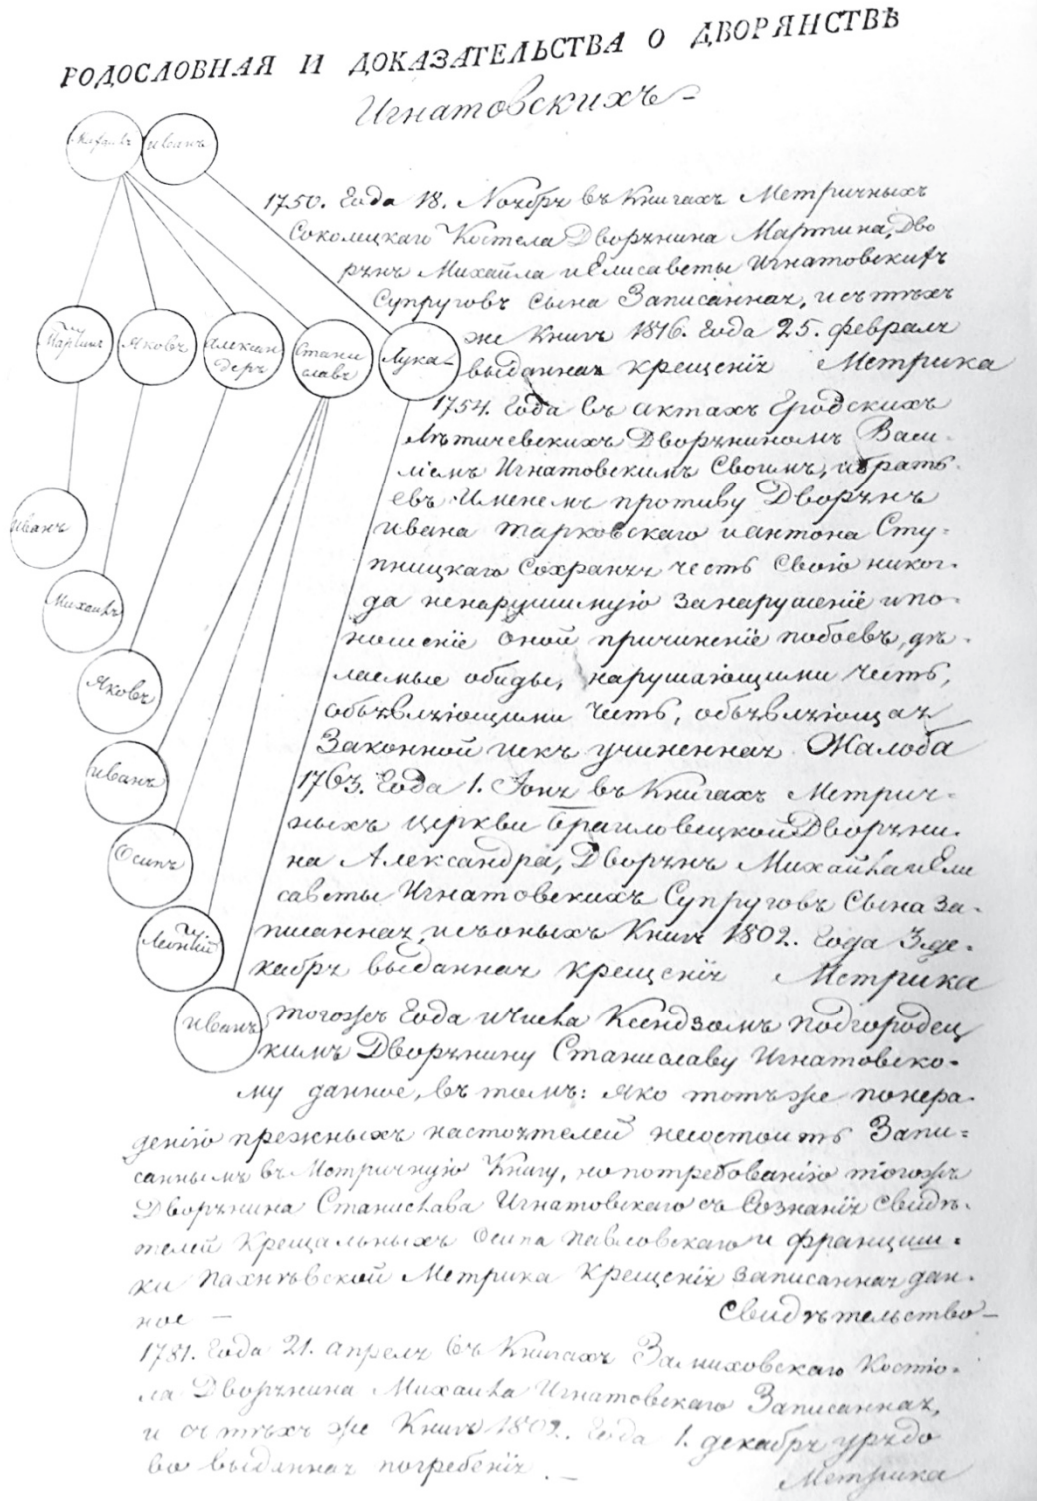 РОДОСЛОВНАЯ И ДОКАЗАТЕЛЬСТВА О ДВОРЯНСТВѢ
Игнатовскихъ
Михаилъ
Иванъ
1750. Года 18. Ноября въ Книгахъ Метричныхъ
Соколецкаго Костела Дворянина Мартина, Дво
рянъ Михайла и Елисаветы Игнатовскихъ
Супруговъ сына Записанная, и съ тѣхъ
же Книгъ 1816. Года 25. февраля
выданная крещенія Метрика
Мартинъ
Яковъ
Александеръ
Станиславъ
Лука
1754. Года Въ актахъ Гродскихъ
Лѣтичевскихъ Дворяниномъ Васи
ліемъ Игнатовскимъ Своимъ, и брать
евъ Именемъ противу Дворянъ
Ивана Тарковскаго и Антона Сту-
пницкаго Сохраняя честь Свою никог-
да ненарушимую за нарушеніе и по-
ношеніе оной причиненіе побоевъ, дѣ-
лаемые обиды, нарушающими Честь,
объявляющими Честь, объявляющая
Законной искъ учиненная Жалоба
Иванъ
Михаилъ
Яковъ
Иванъ
Осипъ
Леонтій
Иванъ
1763. Года 1. Іюня въ Книгахъ Метрич-
ныхъ церкви Браиловецкой Дворяни-
на Александра, Дворянъ Михайла и Ели
саветы Игнатовскихъ Супруговъ Сына за-
писанная, и съ оныхъ Книгъ 1802. Года 3 де-
кабря выданная крещенія Метрика
тогожъ Года и Числа Ксендзомъ Подгородец
кимъ Дворянину Станиславу Игнатовско-
му данное, въ томъ: яко тотъ же понера-
денію прежныхъ настоятелей несостоитъ Запи-
саннымъ въ Метричную Книгу, но потребованію тогожъ
Дворянина Станислава Игнатовскаго съ Сознанія Свидѣ-
телей Крещальныхъ Осипа Павловскаго и Францишки
Метрика Крещенія записанная дан-
ное — Свидѣтельство —
1781. Года 21. апреля Въ Книгахъ Замиховскаго Костіо-
ла Дворянина Михаила Игнатовскаго Записанная,
и съ тѣхъ же Книгъ 1802. Года 1. декабря урядо
во выданная погребенія —
Метрика